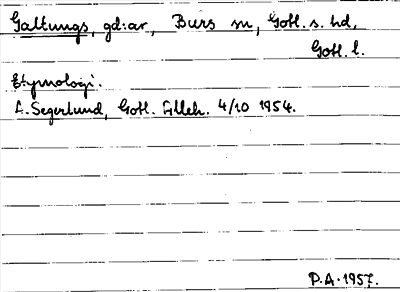 Gallungs, gd:ar, Burs sn, Gotl. s. hd,
Gotl. l.
Etymologi.
A. Segerlund, Gotl. Alleh. 4/10 1954.
P.A. 1957.